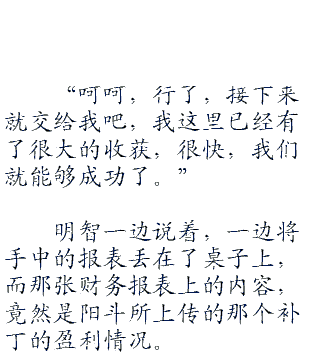 “呵呵，行了，接下来
就交给我吧，我这里已经有
了很大的收获，很快，我们
就能够成功了。”
明智一边说着，一边将
手中的报表丢在了桌子上，
而那张财务报表上的内容，
竟然是阳斗所上传的那个补
丁的盈利情况。